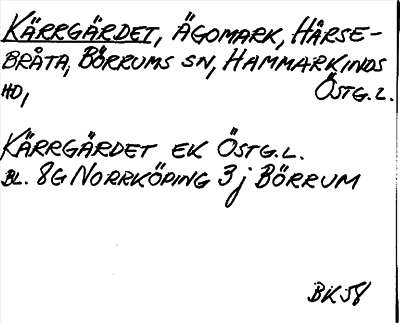 KÄRRGÄRDET, ÄGOMARK, HÅRSE-
BRÅTA, BÖRRUMS SN, HAMMARKINDS
HD, ÖSTG.L.
KÄRRGÄRDET EK ÖSTG.L.
BL. 8G NORRKÖPING 3j BÖRRUM
BK58